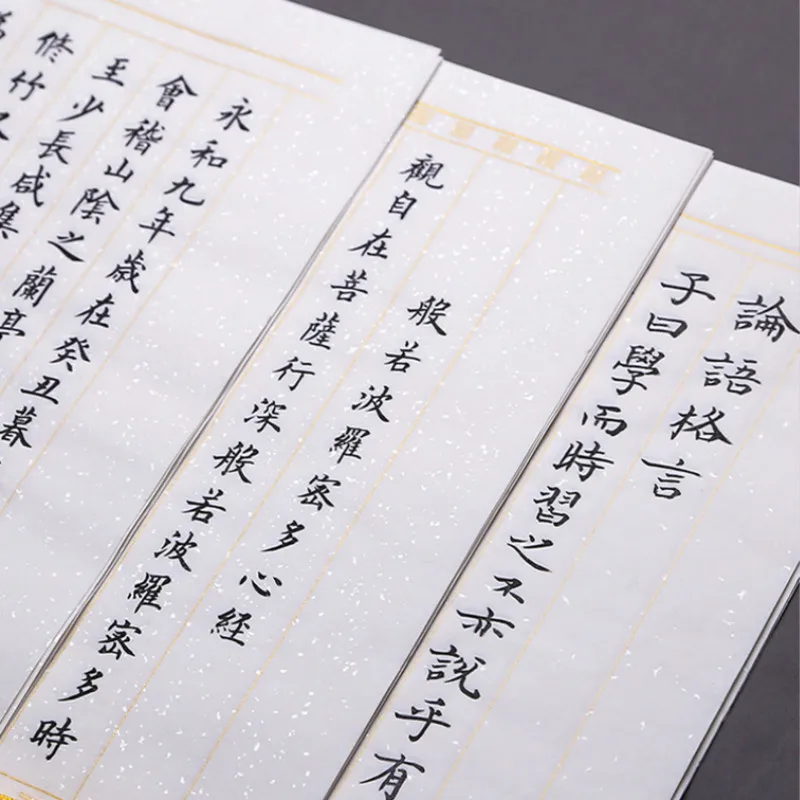 論語格言
子曰學而時習之不亦說乎有
般若波羅密多心経
觀自在菩薩行深般若波羅密多時
永和九年歲在癸丑暮
會稽山陰之蘭亭
至少長咸集
修竹又